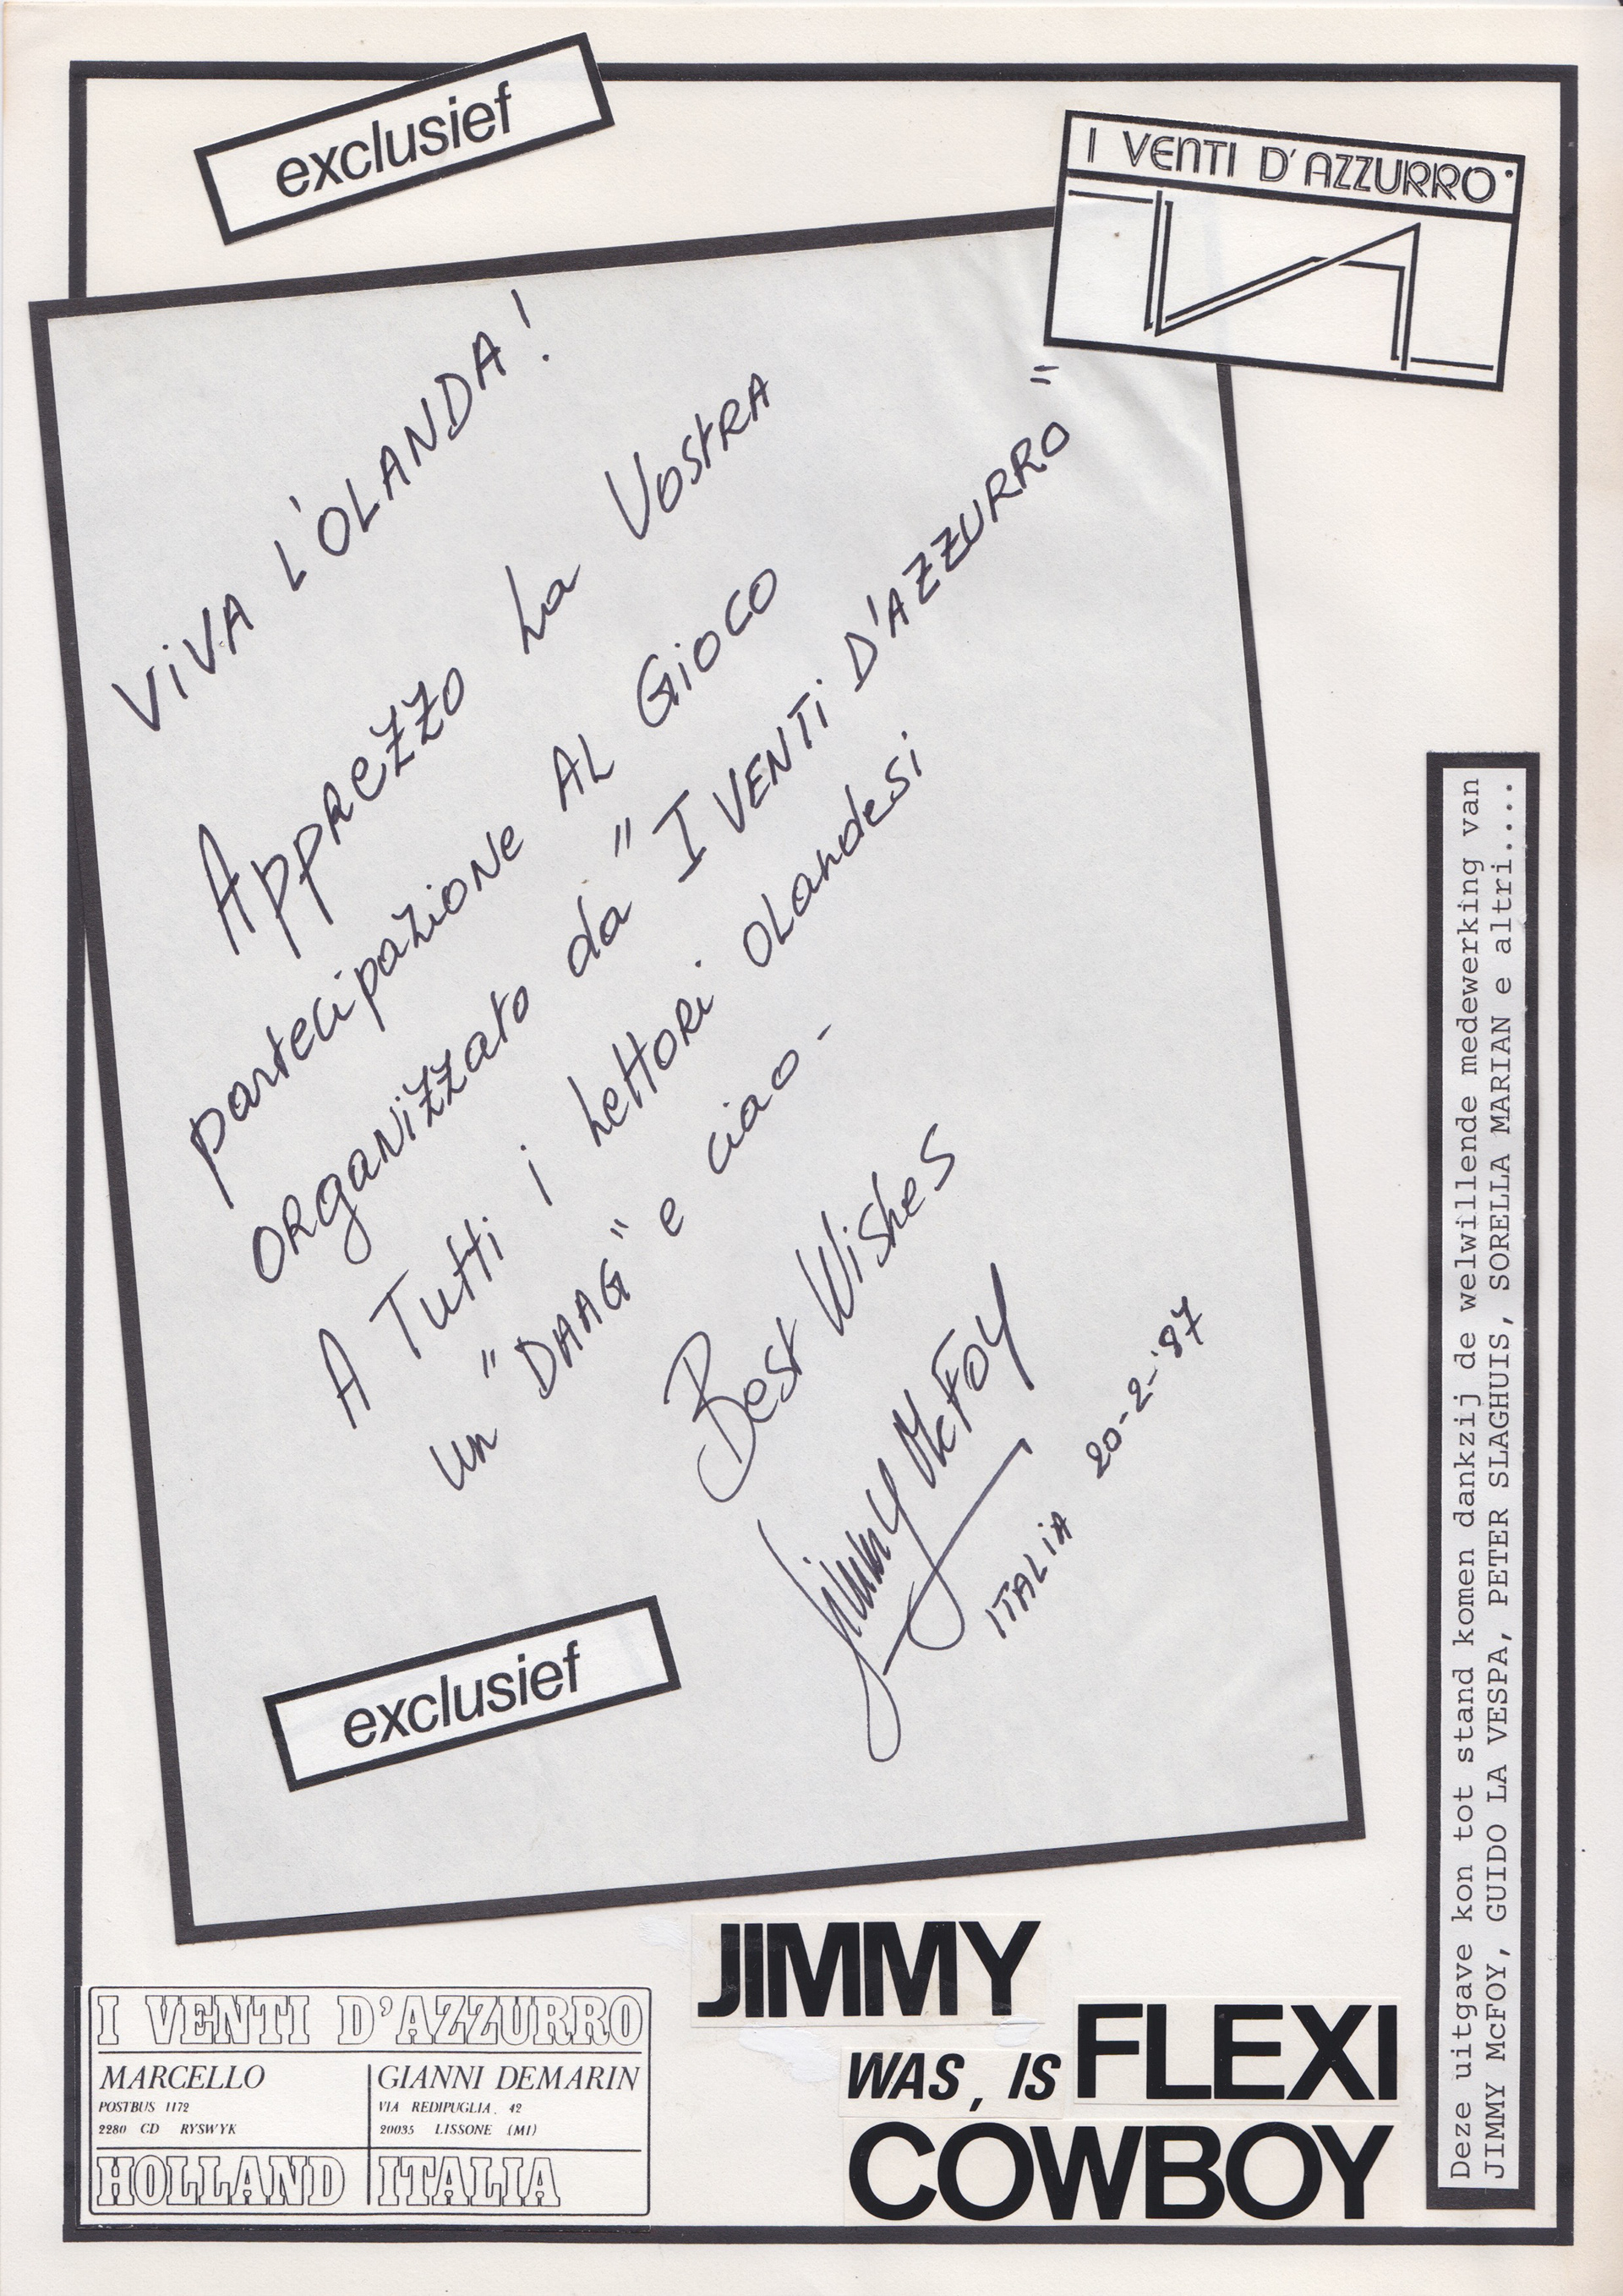 exclusief
I VENTI D'AZZURRO
VIVA L'OLANDA!
Apprezzo la Vostra
partecipazione al Gioco
organizzato da "I VENTI D'AZZURRO"
A Tutti i Lettori olandesi
un "DAAG" e ciao -
Best Wishes
Jimmy McFOY
ITALIA 20-2-'87
exclusief
Deze uitgave kon tot stand komen dankzij de welwillende medewerking van
JIMMY McFOY, GUIDO LA VESPA, PETER SLAGHUIS, SORELLA MARIAN e altri....
JIMMY
WAS, IS FLEXI
COWBOY
I VENTI D'AZZURRO
MARCELLO
POSTBUS 1172
2280 CD RYSWYK
HOLLAND
GIANNI DEMARIN
VIA REDIPUGLIA, 42
20035 LISSONE (MI)
ITALIA